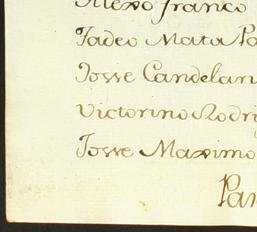 Alexo franco
Tadeo Mata Pa
Josse Candelan
Victorino Rodri
Josse Maximo
Par